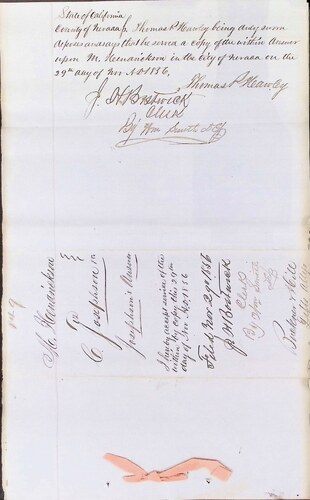 State of California
County of Nevada } Thomas P Hawley being duly sworn
deposes and says that he served a copy of the within Answer
upon M. Hendrickson in the City of Nevada on the
29th day of Nov AD 1856.
Thomas P Hawley
J. H. Bostwick
Clerk
By Wm Smith
M. Hendrickson
vs
C. Josephson
Josephson's Answer
I hereby accept service of the
within by copy this 29th
day of Nov AD 1856
Filed Nov 29th 1856
J. H. Bostwick
Clerk
By Wm Smith
Buckner & Hill